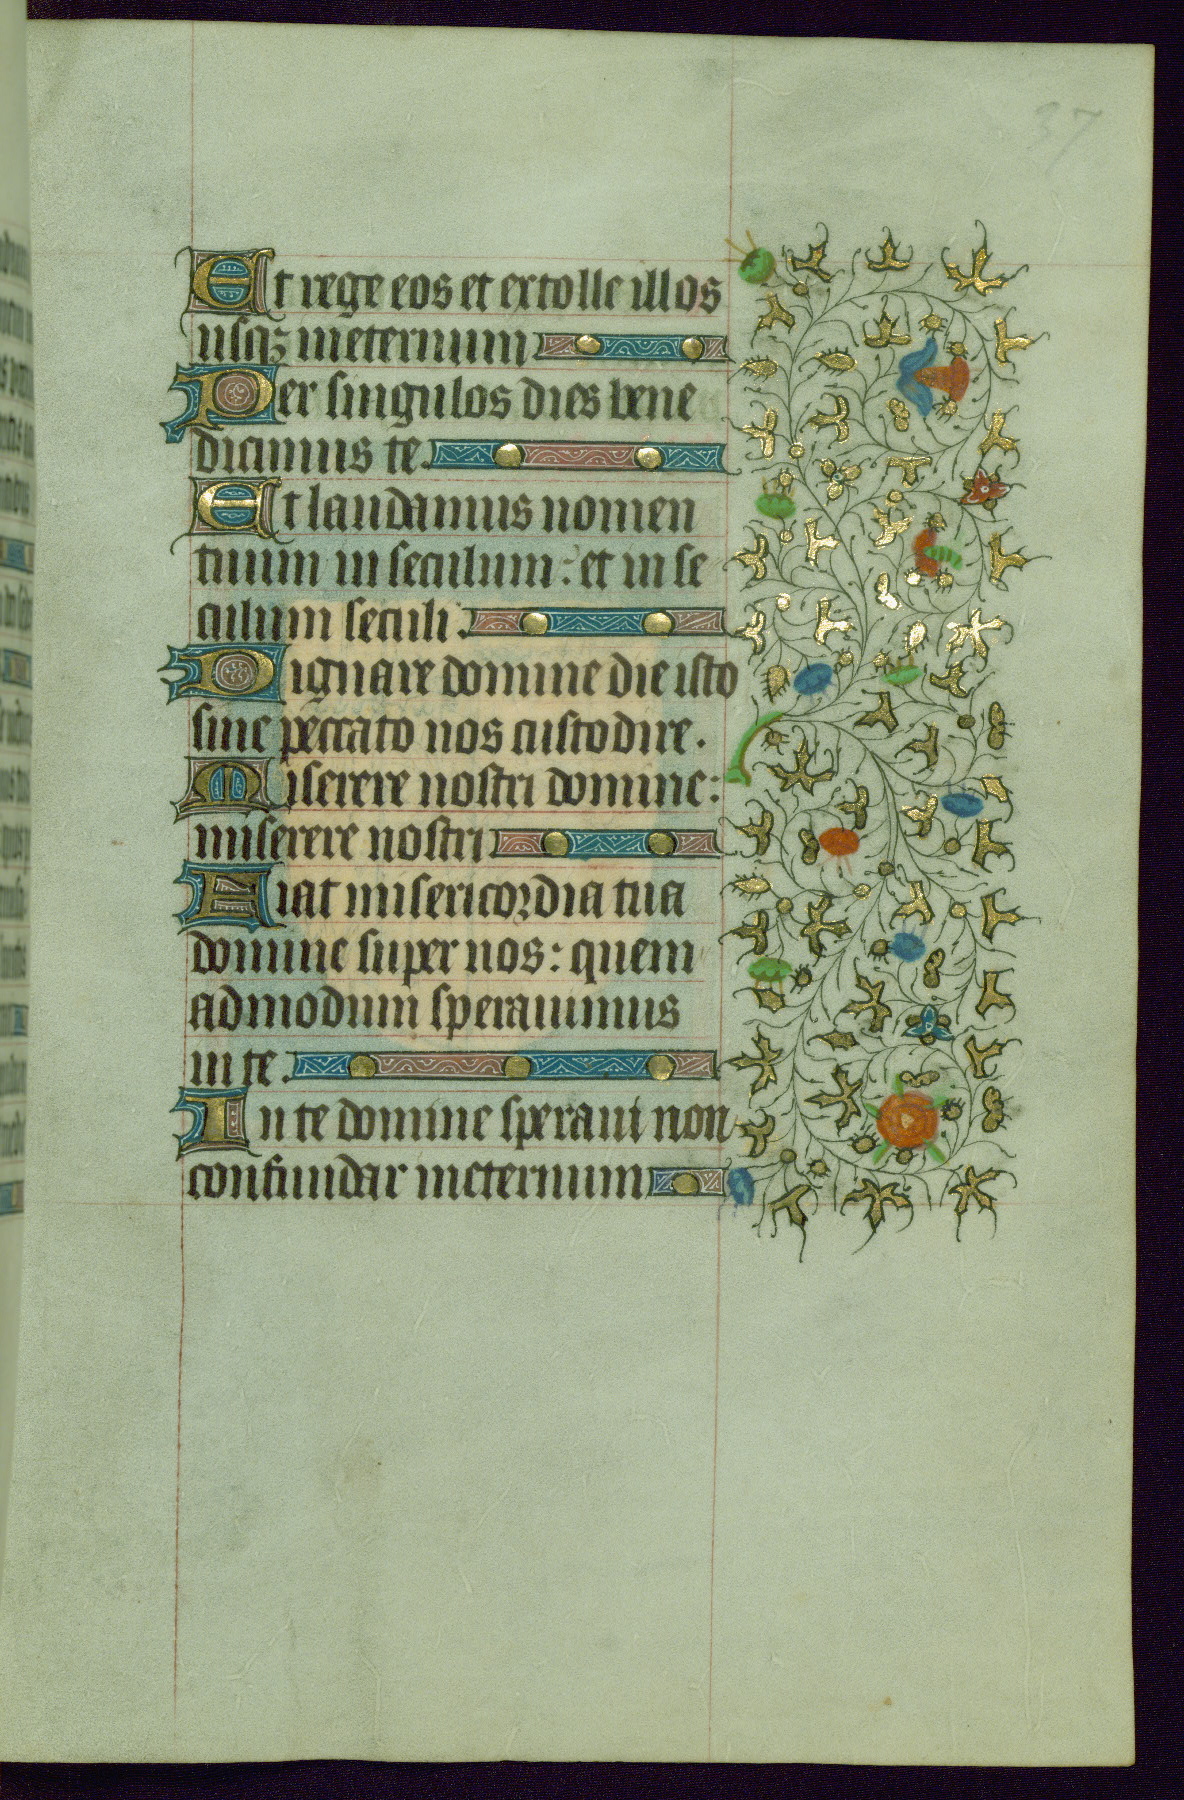 37
Et rege eos et extolle illos
usqꝫ ineternum
Per singulos dies bene
dicimus te.
Et laudamus nomen
tuum in seculum: et in se
culum seculi.
Dignare domine die isto
sine peccato nos custodire.
Miserere nostri domine:
miserere nostri
Fiat misericordia tua
domine super nos: quem
admodum sperauimus
in te.
In te domine speraui non
confundar ineternum